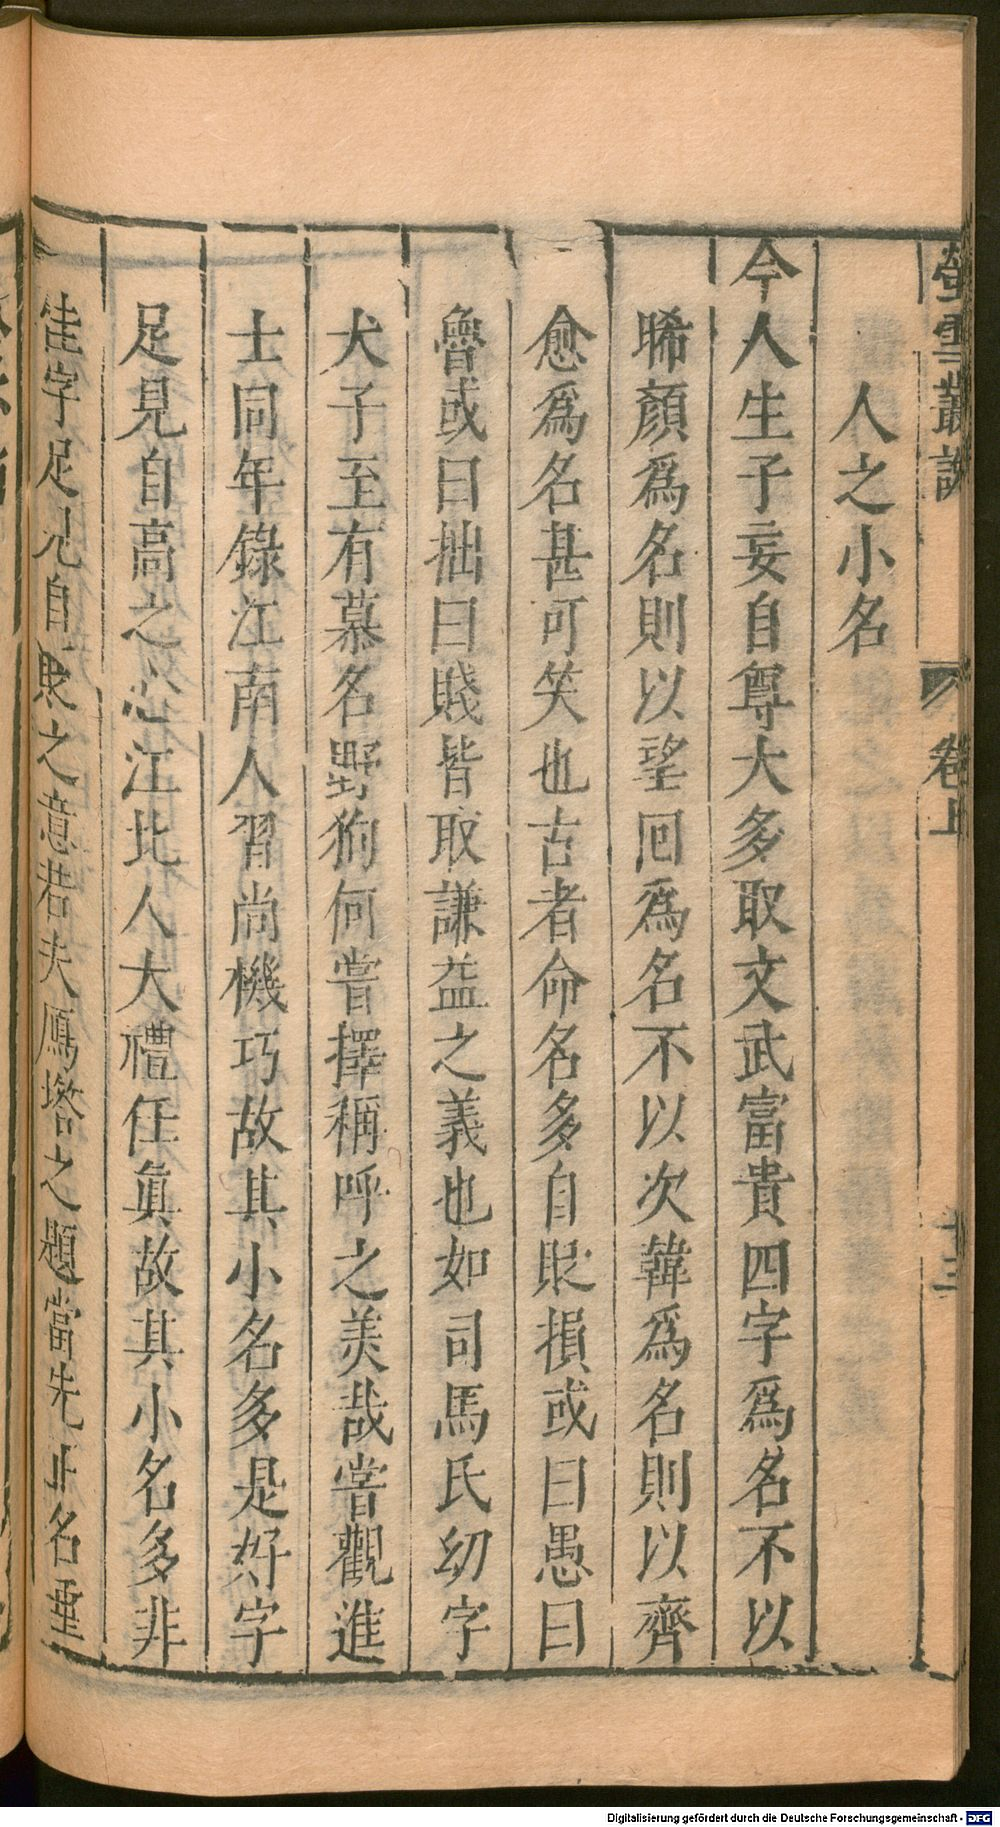 螢雪叢說 卷上 十三
人之小名
今人生子妄自尊大多取文武富貴四字爲名不以
睎顏爲名則以望回爲名不以次韓爲名則以齊
愈爲名甚可笑也古者命名多自貶損或曰愚曰
魯或曰拙曰賤皆取謙益之義也如司馬氏幼字
犬子至有慕名野狗何嘗擇稱呼之美哉嘗觀進
士同年錄江南人習尚機巧故其小名多是好字
足見自高之心江北人大禮任眞故其小名多非
佳字足見自貶之意若夫鴈塔之題當先正名垂
Digitalisierung gefördert durch die Deutsche Forschungsgemeinschaft - DFG